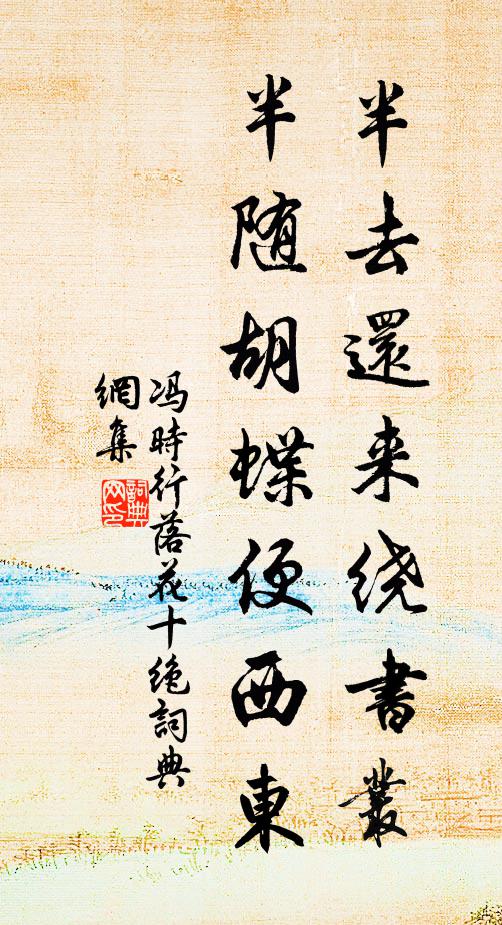 半去還来绕書叢
半随胡蝶便西東
冯時行落花十绝詞典
網集
詞典
网印